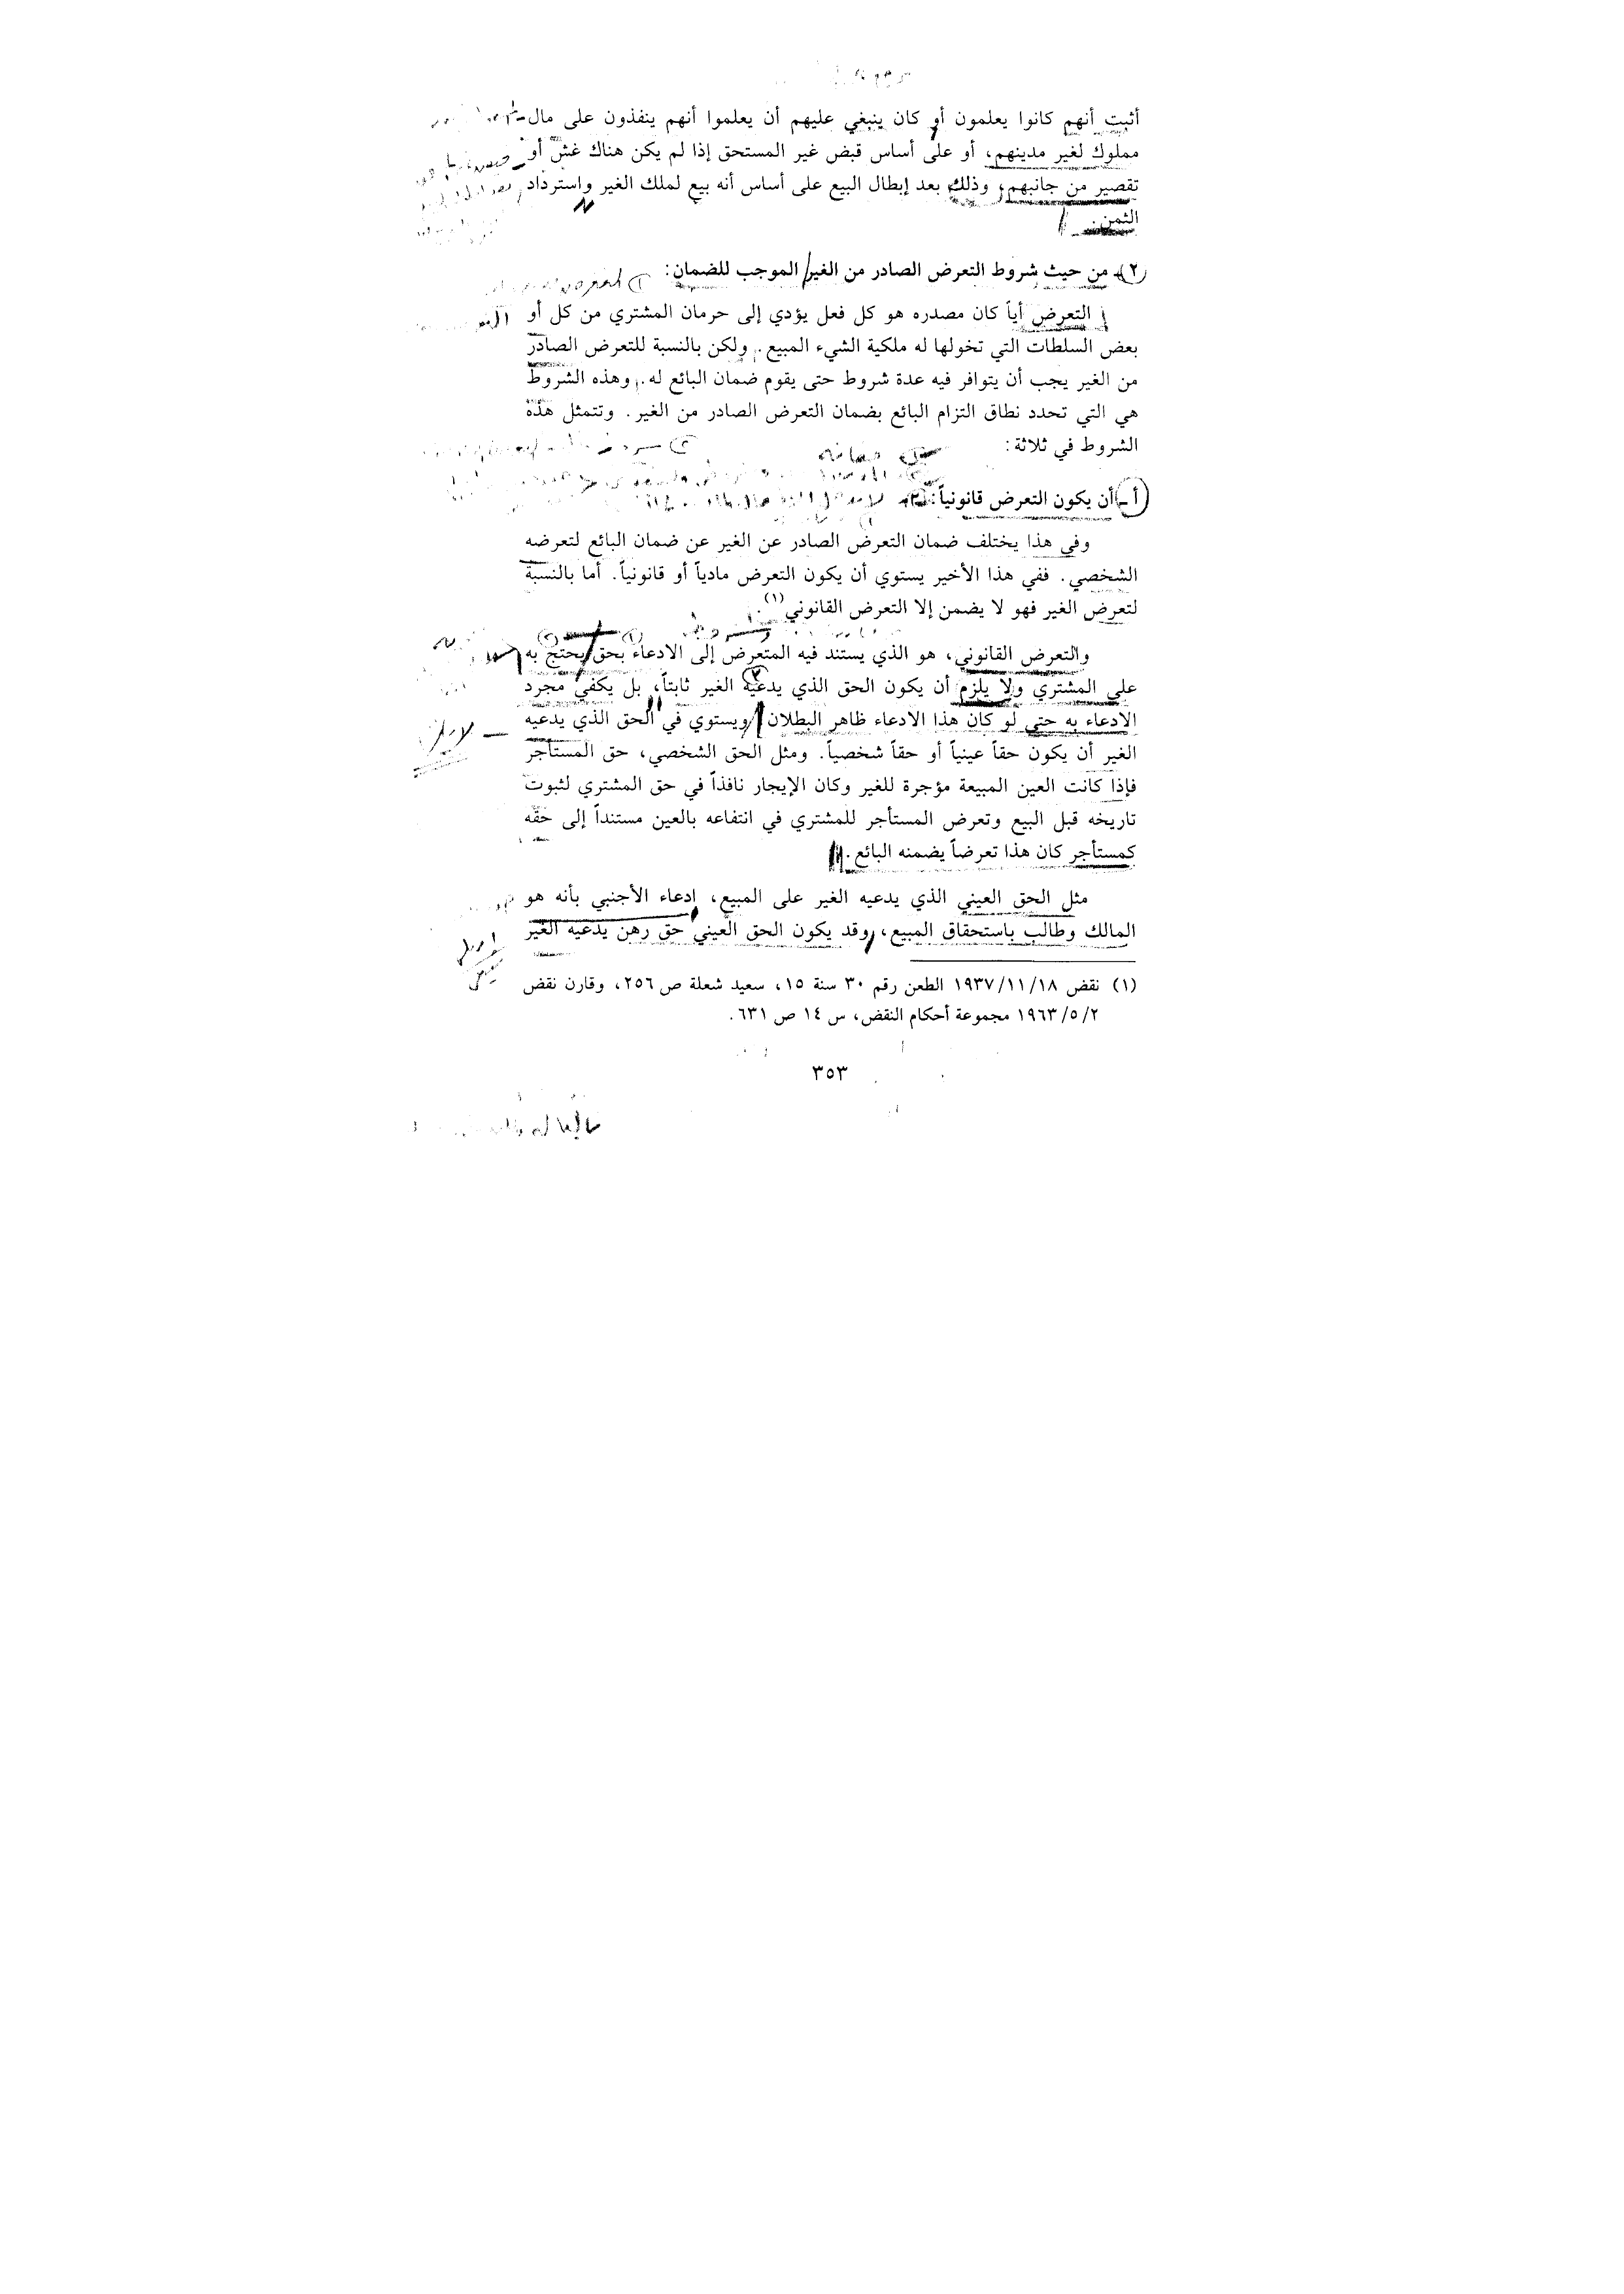 أثبت أنهم كانوا يعلمون أو كان ينبغي عليهم أن يعلموا أنهم ينفذون على مال
مملوك لغير مدينهم، أو على أساس قبض غير المستحق إذا لم يكن هناك غش أو
تقصير من جانبهم، وذلك بعد إبطال البيع على أساس أنه بيع لملك الغير واسترداد
الثمن.
(٢) من حيث شروط التعرض الصادر من الغير الموجب للضمان:
التعرض أياً كان مصدره هو كل فعل يؤدي إلى حرمان المشتري من كل أو
بعض السلطات التي تخولها له ملكية الشيء المبيع. ولكن بالنسبة للتعرض الصادر
من الغير يجب أن يتوافر فيه عدة شروط حتى يقوم ضمان البائع له. وهذه الشروط
هي التي تحدد نطاق التزام البائع بضمان التعرض الصادر من الغير. وتتمثل هذه
الشروط في ثلاثة:
أ - أن يكون التعرض قانونياً:
وفي هذا يختلف ضمان التعرض الصادر عن الغير عن ضمان البائع لتعرضه
الشخصي. ففي هذا الأخير يستوي أن يكون التعرض مادياً أو قانونياً. أما بالنسبة
لتعرض الغير فهو لا يضمن إلا التعرض القانوني(١).
والتعرض القانوني، هو الذي يستند فيه المتعرض إلى الادعاء بحق يحتج به
على المشتري ولا يلزم أن يكون الحق الذي يدعيه الغير ثابتاً، بل يكفي مجرد
الادعاء به حتى لو كان هذا الادعاء ظاهر البطلان ويستوي في الحق الذي يدعيه
الغير أن يكون حقاً عينياً أو حقاً شخصياً. ومثل الحق الشخصي، حق المستأجر
فإذا كانت العين المبيعة مؤجرة للغير وكان الإيجار نافذاً في حق المشتري لثبوت
تاريخه قبل البيع وتعرض المستأجر للمشتري في انتفاعه بالعين مستنداً إلى حقه
كمستأجر كان هذا تعرضاً يضمنه البائع.
مثل الحق العيني الذي يدعيه الغير على المبيع، إدعاء الأجنبي بأنه هو
المالك وطالب باستحقاق المبيع، وقد يكون الحق العيني حق رهن يدعيه الغير
(١) نقض ١٩٣٧/١١/١٨ الطعن رقم ٣٠ سنة ١٥، سعيد شعلة ص ٢٥٦، وقارن نقض
١٩٦٣/٥/٢ مجموعة أحكام النقض، س ١٤ ص ٦٣١.
٣٥٣